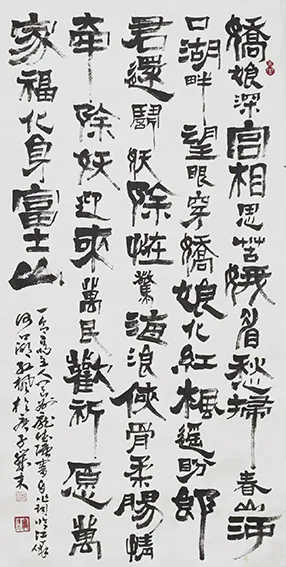 嬌娘深宮相思苦娥眉愁掃春山河
口湖畔望眼穿嬌娘化紅楓遥盼郎
君還鬭妖除恠驚海浪俠骨柔腸情
牽除妖迎來萬民歡祈願萬
家福化身富士山
於庚子歲末